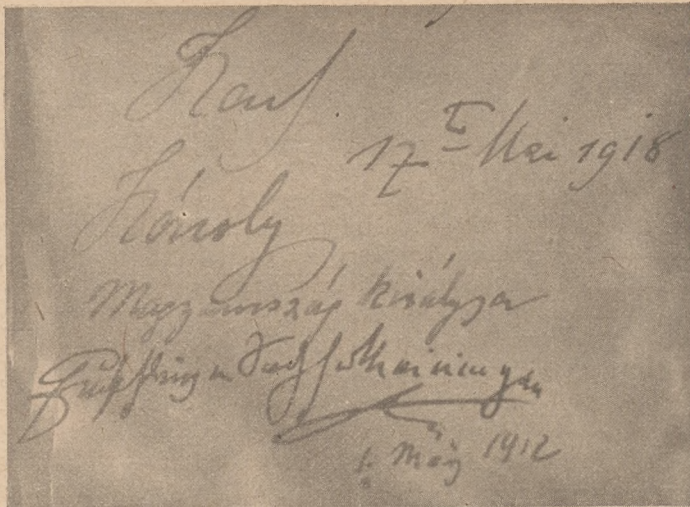 Karl
17 t Mai 1918
Károly
Magyarország királya
Ernst Prinz v Sachsen Meiningen
1. März 1912